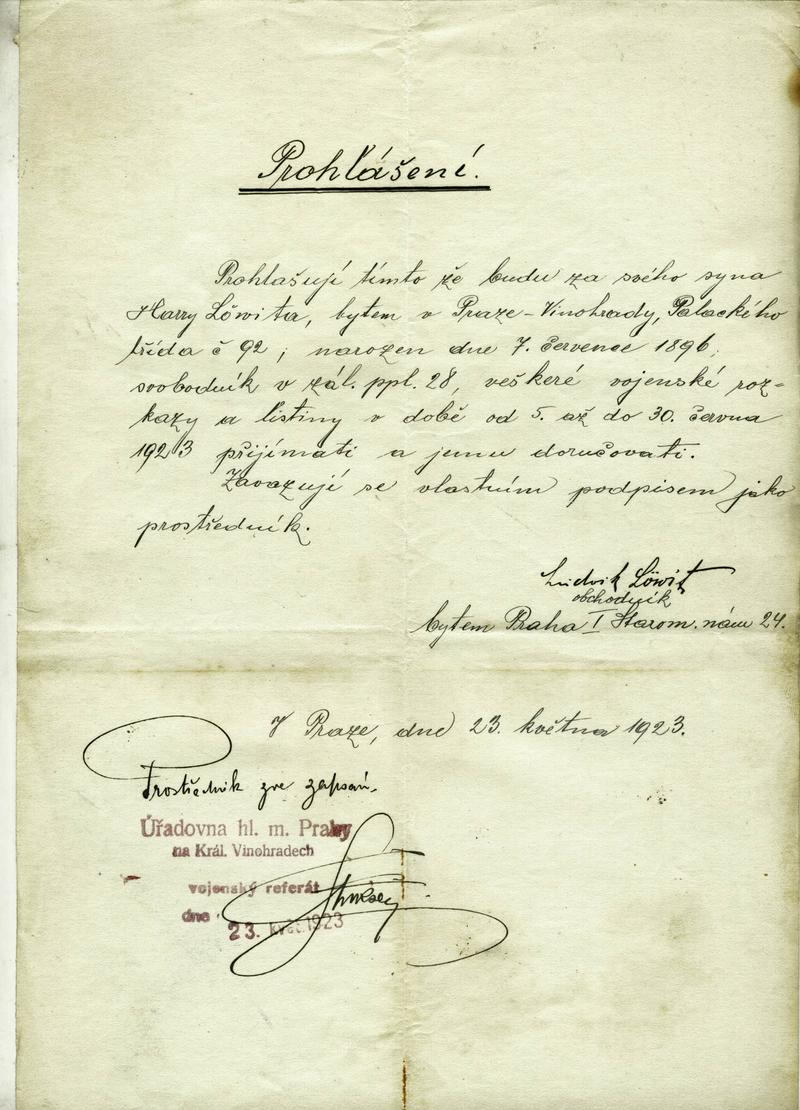 Prohlášení.
Prohlašují tímto že budu za svého syna
Harry Löwita, bytem v Praze-Vinohrady, Palackého
třída č 92, narozen dne 7. července 1896,
svobodník v zál. ppl. 28, veškeré vojenské roz-
kazy a listiny v době od 5. až do 30. června
1923 přijímati a jemu doručovati.
Zavazují se vlastním podpisem jako
prostředník.
Ludvik Löwit
obchodník
bytem Praha I Starom. nám 24.
V Praze, dne 23. května 1923.
Prostředník zapsán.
Úřadovna hl. m. Prahy
na Král. Vinohradech
vojenský referát
dne 23. kvě. 1923